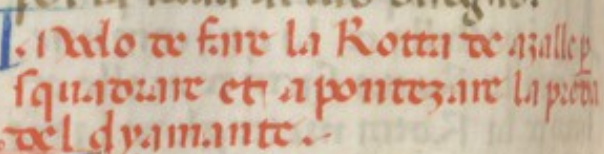 Modo de fare la Rotta de azalle p
squadrare et apontezare la preda
del dyamante.